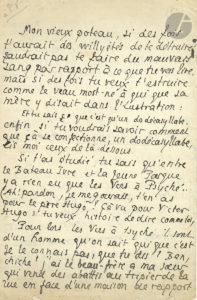 Mon vieux poteau, si des fois
t'aurait des willyétés de le détruire
faudrait pas te faire du mauvais
sang pas rapport à ce que tu vas lire
mais si du fois tu veux t'estruire
comme le veau mort-né à qui que sa
mère y disait dans l'Castration:
Et tu sais ço que c'est qu'un dodécasyllabe
enfin si tu voudrais savoir comment
que ça se confectionne, un dodécasyllabe,
lis moi ceux de là-dessous.
Si t'as étudié, tu sais qu'entre
le Bateau Ivre et la Jeune Parque
y a rien eu que les Vers à Psyché.
Ah! pardon, je me gourrais, t'en as
pour le père Hugo! Ça va pour Victor-
Hugo si tu veux histoire de dire comme toi,
Pour lors les Vers à Psyché, ils sont
d'un homme qu'on sait qui que c'est.
Je le connais pas, que tu dis? Ben,
cliché! ai le beau-frère à ma sœur
qui vend des abattis au trois de la
rue en face d'une maison bée rapport